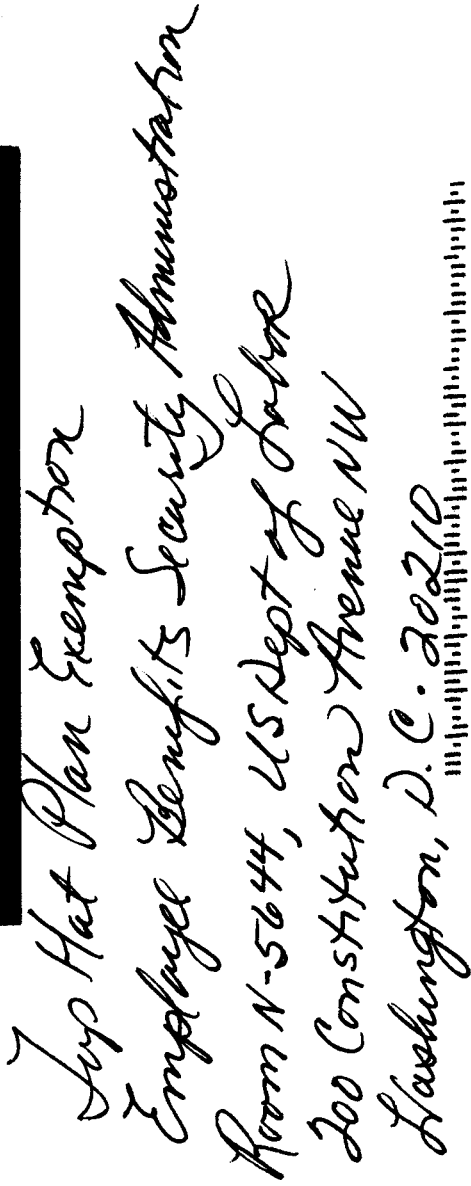 Top Hat Plan Exemption
Employee Benefits Security Administration
Room N-5644, US Dept of Labor
200 Constitution Avenue NW
Washington, D.C. 20210